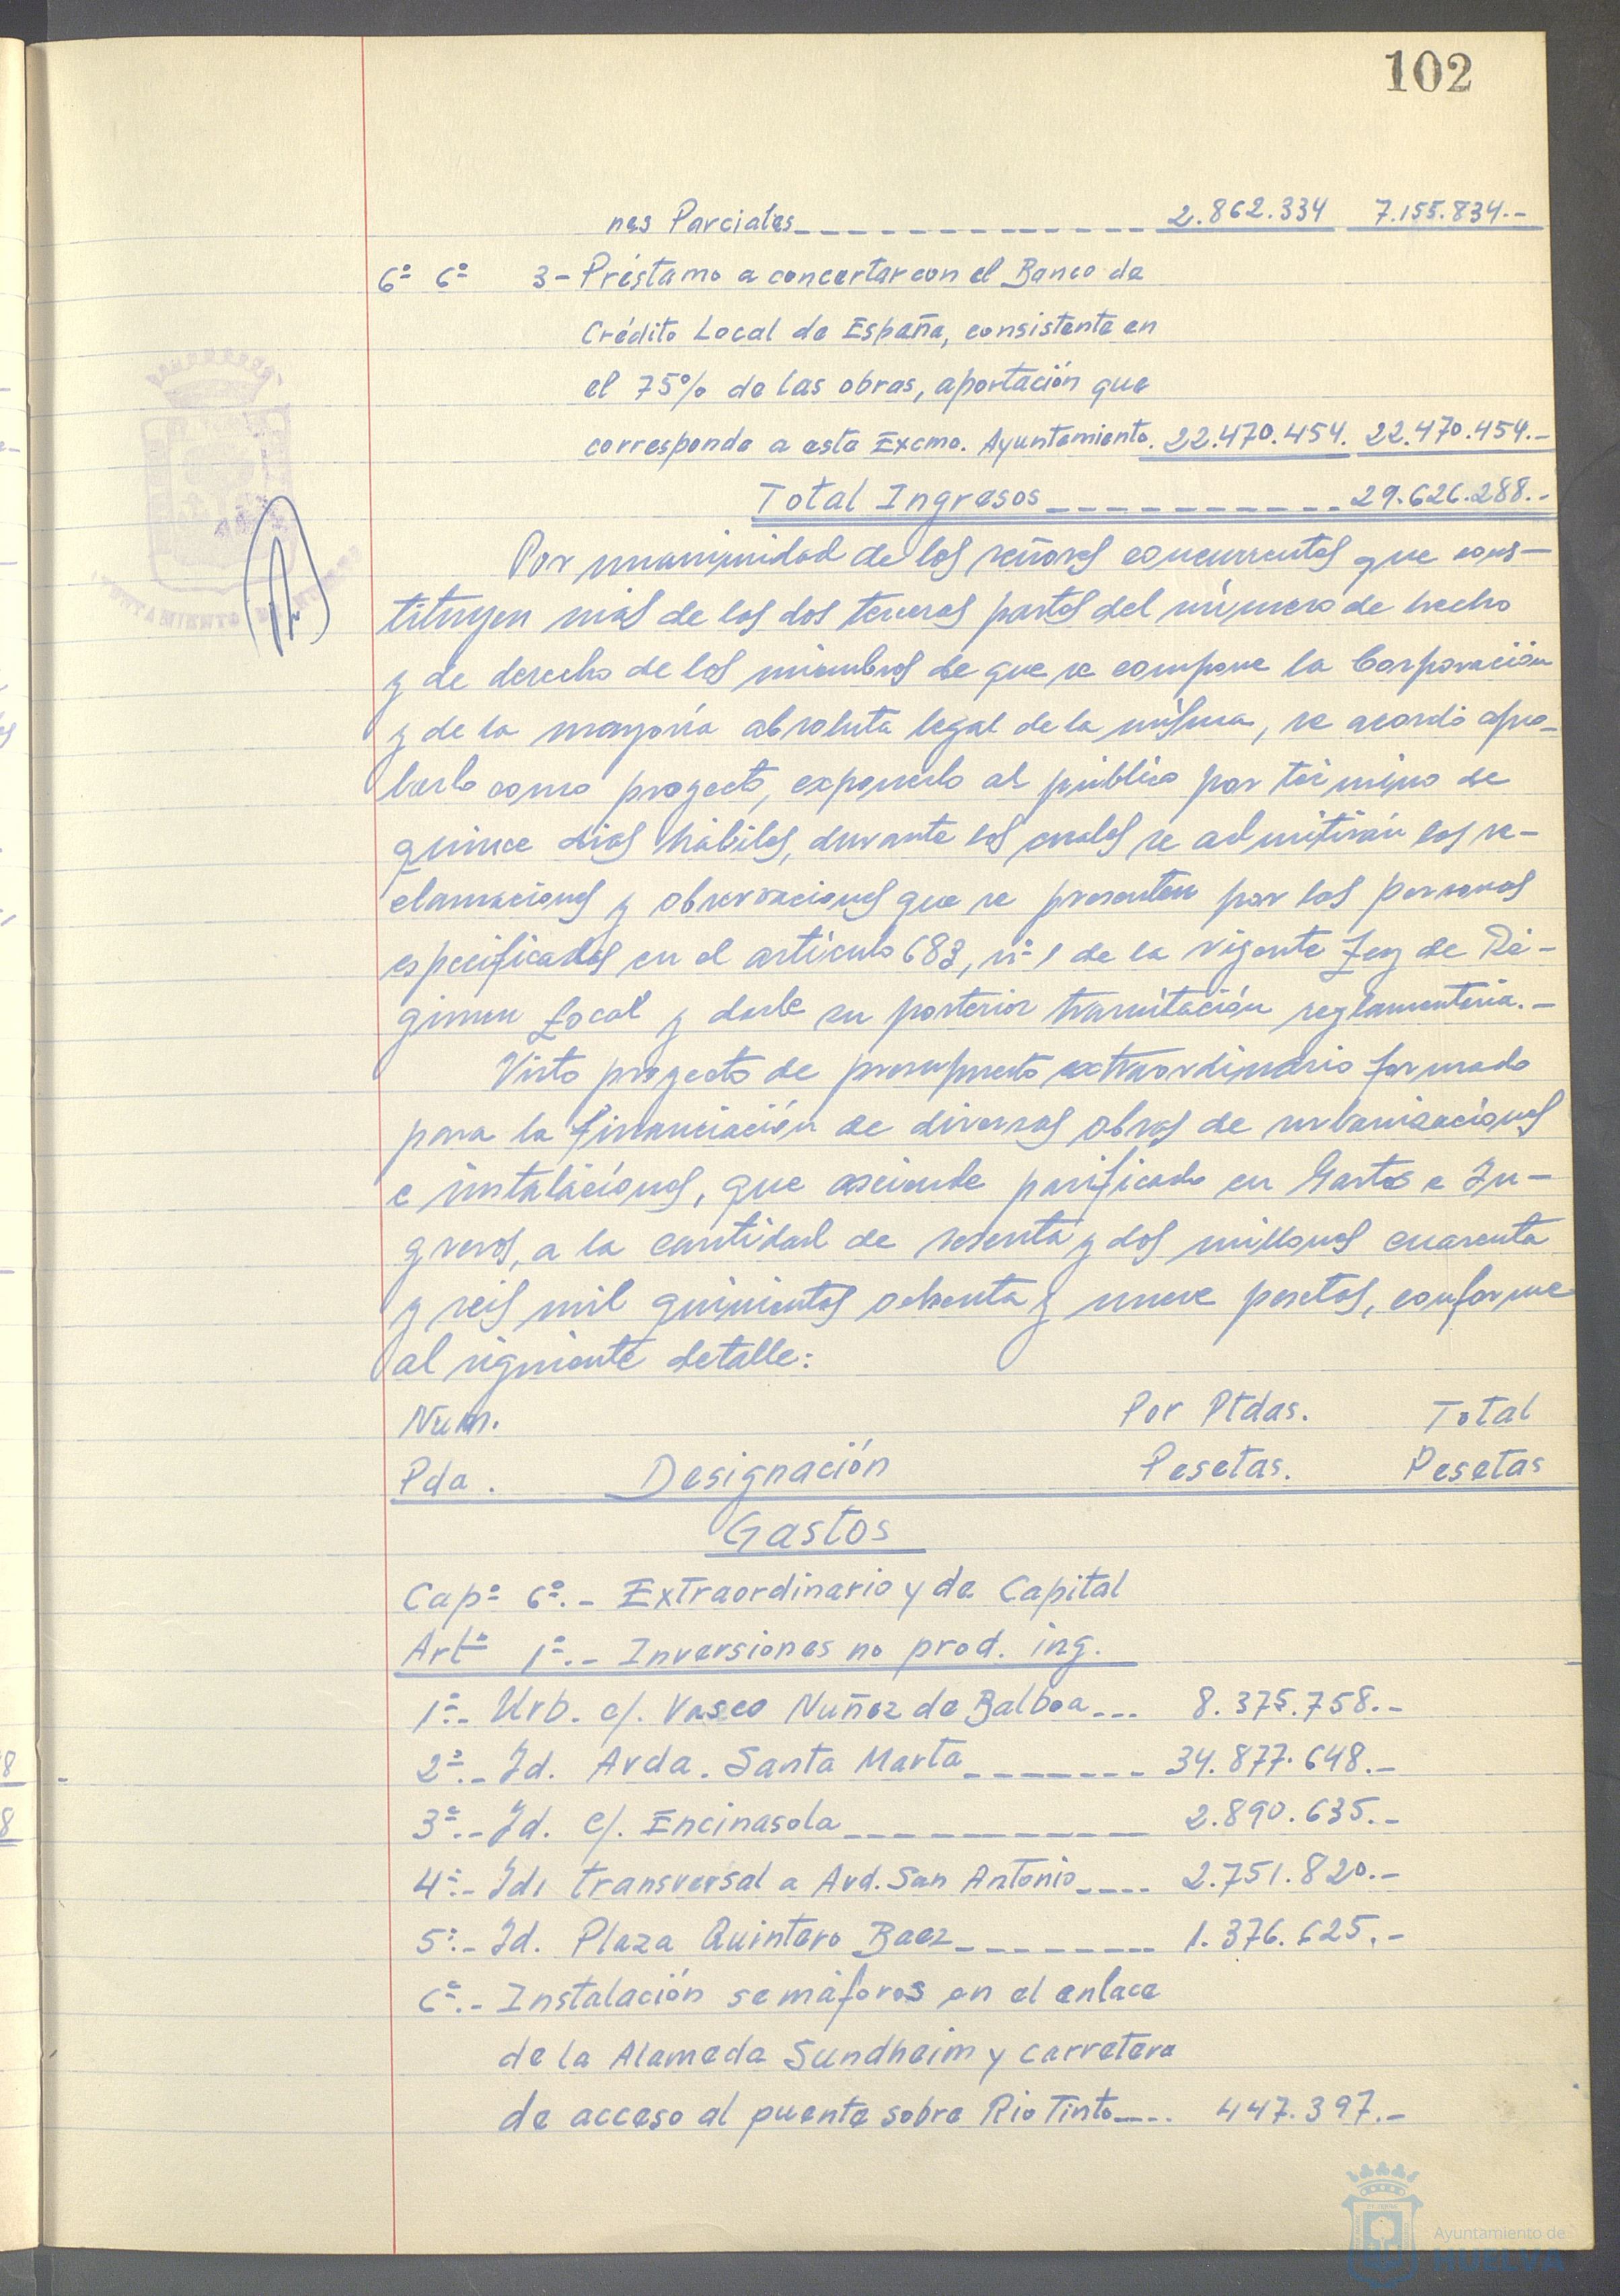 102
nes Parciales 2.862.334 7.155.834.-
6º 6º 3- Préstamo a concertar con el Banco de
Crédito Local de España, consistente en
el 75% de las obras, aportación que
corresponde a este Excmo. Ayuntamiento. 22.470.454. 22.470.454.-
Total Ingresos 29.626.288.-
Por unanimidad de los señores concurrentes que cons-
tituyen más de las dos terceras partes del número de hecho
y de derecho de los miembros de que se compone la Corporación
y de la mayoría absoluta legal de la misma, se acordó apro-
barlo como proyecto, exponerlo al público por término de
quince días hábiles, durante los cuales se admitirán las re-
clamaciones y observaciones que se presenten por las personas
especificadas en el artículo 683, nº 1 de la vigente Ley de Ré-
gimen Local y darle su posterior tramitación reglamentaria.-
Visto proyecto de presupuesto extraordinario formado
para la financiación de diversas obras de urbanizaciones
e instalaciones, que asciende parificado en Gastos e In-
gresos, a la cantidad de sesenta y dos millones cuarenta
y seis mil quinientas ochenta y nueve pesetas, conforme
al siguiente detalle:
Num. Por Ptdas. Total
Pda. Designación Pesetas. Pesetas
Gastos
Capº 6º.- Extraordinario y de Capital
Artº 1º.- Inversiones no prod. ing.
1º.- Urb. c/. Vasco Nuñez de Balboa 8.375.758.-
2º.- Id. Avda. Santa Marta 34.877.648.-
3º.- Id. c/. Encinasola 2.890.635.-
4º.- Id. transversal a Avd. San Antonio 2.751.820.-
5º.- Id. Plaza Quintero Baez 1.376.625.-
6º.- Instalación semáforos en el enlace
de la Alameda Sundheim y carretera
de acceso al puente sobre Rio Tinto 447.397.-
Ayuntamiento de
HUELVA